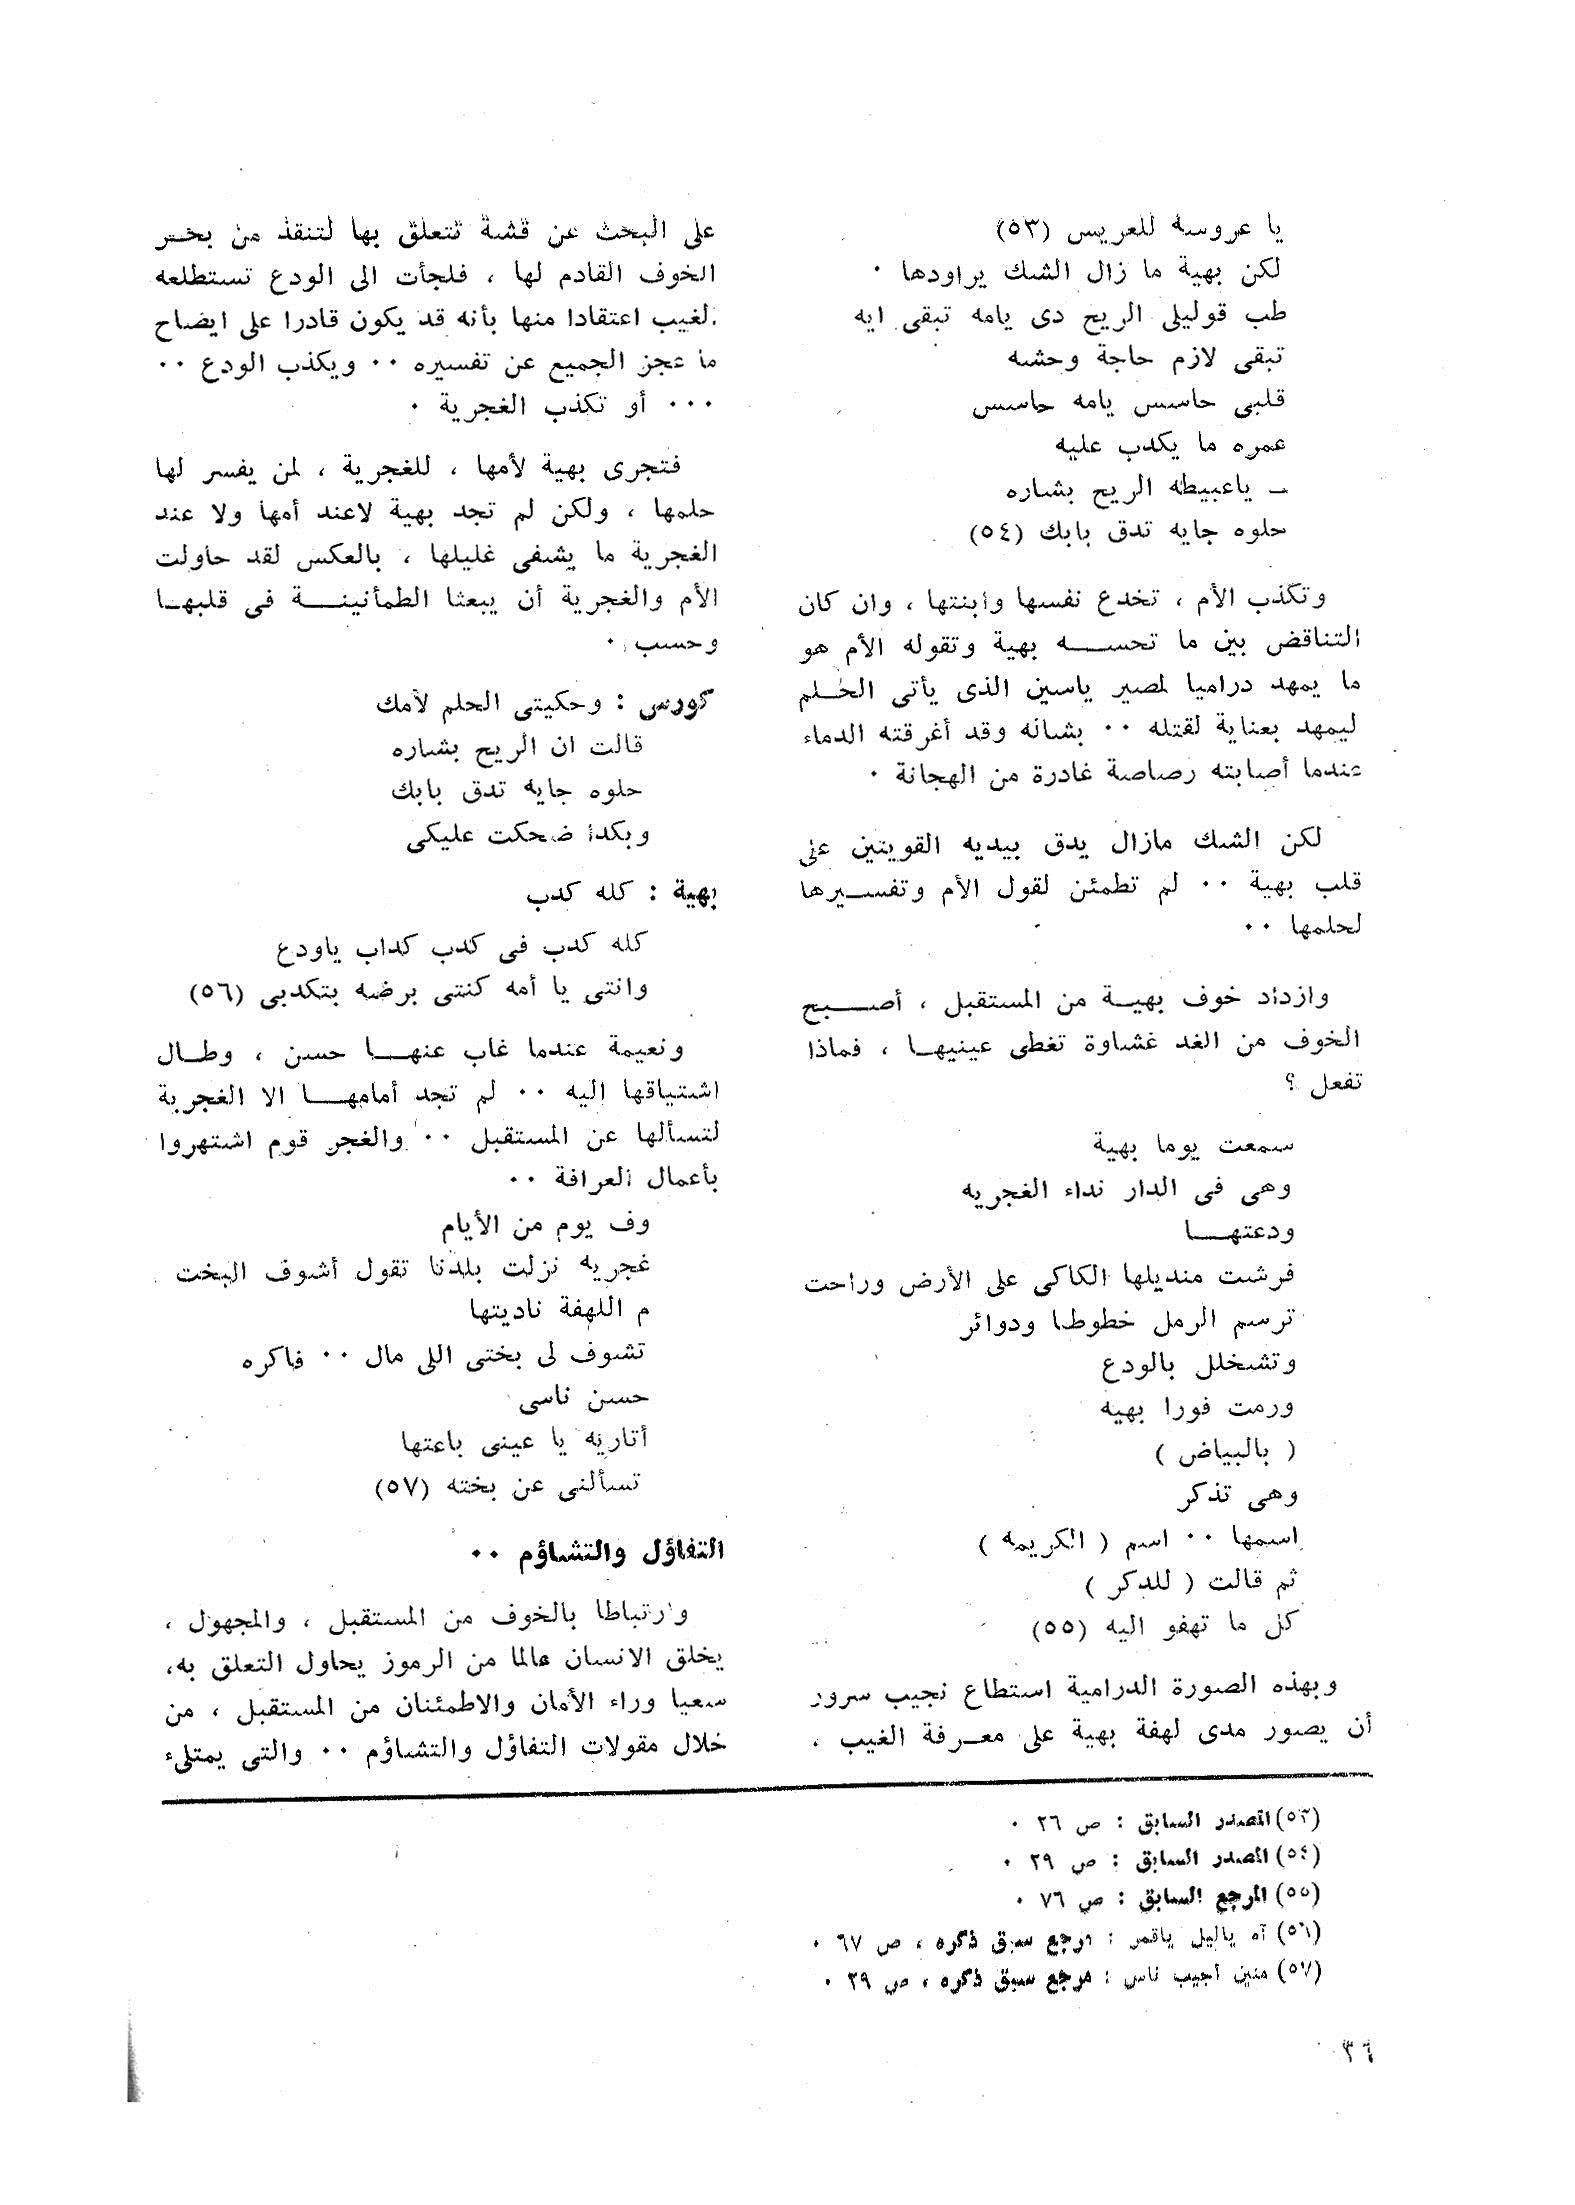 يا عروسة للعريس (٥٣)
لكن بهية ما زال الشك يراودها ٠
طب قوليلى الريح دى يامه تبقى ايه
تبقى لازم حاجة وحشه
قلبى حاسس يامه حاسس
عمره ما يكدب عليه
ــ ياعبيطه الريح بشاره
حلوه جايه تدق بابك (٥٤)
وتكذب الأم ، تخدع نفسها وابنتها ، وان كان
التناقض بين ما تحســـه بهية وتقوله الأم هو
ما يمهد دراميا لمصير ياسين الذى يأتى الحـلم
ليمهد بعناية لقتله ٠٠ بشانه وقد أغرقته الدماء
عندما أصابته رصاصة غادرة من الهجانة ٠
لكن الشك مازال يدق بيديه القويتين على
قلب بهية ٠٠ لم تطمئن لقول الأم وتفســيرها
لحلمها ٠٠
وازداد خوف بهيـة من المستقبل ، أصـــبح
الخوف من الغد غشاوة تغطى عينيهـا ، فماذا
تفعل ؟
سمعت يوما بهية
وهى فى الدار نداء الغجريه
ودعتهــا
فرشت منديلها الكاكى على الأرض وراحت
ترسم الرمل خطوطا ودوائر
وتشخلل بالودع
ورمت فورا بهيه
( بالبياض )
وهى تذكر
اسمها ٠٠ اسم ( الكريمه )
ثم قالت ( للدكر )
كل ما تهفو اليه (٥٥)
وبهذه الصورة الدرامية استطاع نجيب سرور
أن يصور مدى لهفة بهية على معـرفة الغيب ،
على البحث عن قشة تتعلق بها لتنقذ من بحـر
الخوف القادم لها ، فلجأت الى الودع تستطلعه
الغيب اعتقادا منها بأنه قد يكون قادرا على ايضاح
ما عجز الجميع عن تفسيره ٠٠ ويكذب الودع ٠٠
٠٠٠ أو تكذب الغجرية ٠
فتجرى بهية لأمها ، للغجرية ، لمن يفسر لها
حلمها ، ولكن لم تجد بهية لاعند أمها ولا عند
الغجرية ما يشفى غليلها ، بالعكس لقد حاولت
الأم والغجرية أن يبعثا الطمأنينـــة فى قلبهـا
وحسب ٠
كورس : وحكيتى الحلم لأمك
قالت ان الريح بشاره
حلوه جايه تدق بابك
وبكدا ضحكت عليكى
بهية : كله كدب
كله كدب فى كدب كداب ياودع
وانتى يا أمه كنتى برضه بتكدبى (٥٦)
ونعيمة عندما غاب عنهــا حسن ، وطـال
اشتياقها اليه ٠٠ لم تجد أمامهــا الا الغجرية
لتسألها عن المستقبل ٠٠ والغجر قوم اشتهروا
بأعمال العرافة ٠٠
وف يوم من الأيام
غجريه نزلت بلدنا تقول أشوف البخت
م اللهفة ناديتها
تشوف لى بختى اللى مال ٠٠ فاكره
حسن ناسى
أتاريه يا عينى باعتها
تسألنى عن بخته (٥٧)
التفاؤل والتشاؤم ٠٠
وارتباطا بالخوف من المستقبل ، والمجهول ،
يخلق الانسان عالما من الرموز يحاول التعلق به،
سعيا وراء الأمان والاطمئنان من المستقبل ، من
خلال مقولات التفاؤل والتشاؤم ٠٠ والتى يمتلىء
(٥٣) المصدر السابق : ص ٢٦ ٠
(٥٤) المصدر السابق : ص ٢٩ ٠
(٥٥) المرجع السابق : ص ٧٦ ٠
(٥٦) آه ياليل ياقمر : مرجع سبق ذكره ، ص ٦٧ ٠
(٥٧) منين أجيب ناس : مرجع سبق ذكره ، ص ٢٩ ٠
٣٦